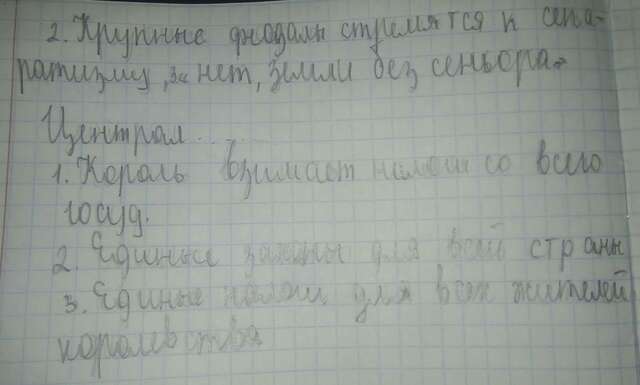 2. Крупные феодалы стремятся к сепа-
ратизму, за нет, земли без сеньора.
Централ...
1. Король взимает налоги со всего
госуд.
2. Единые законы для всей страны
3. Единые налоги для всех жителей
королевства